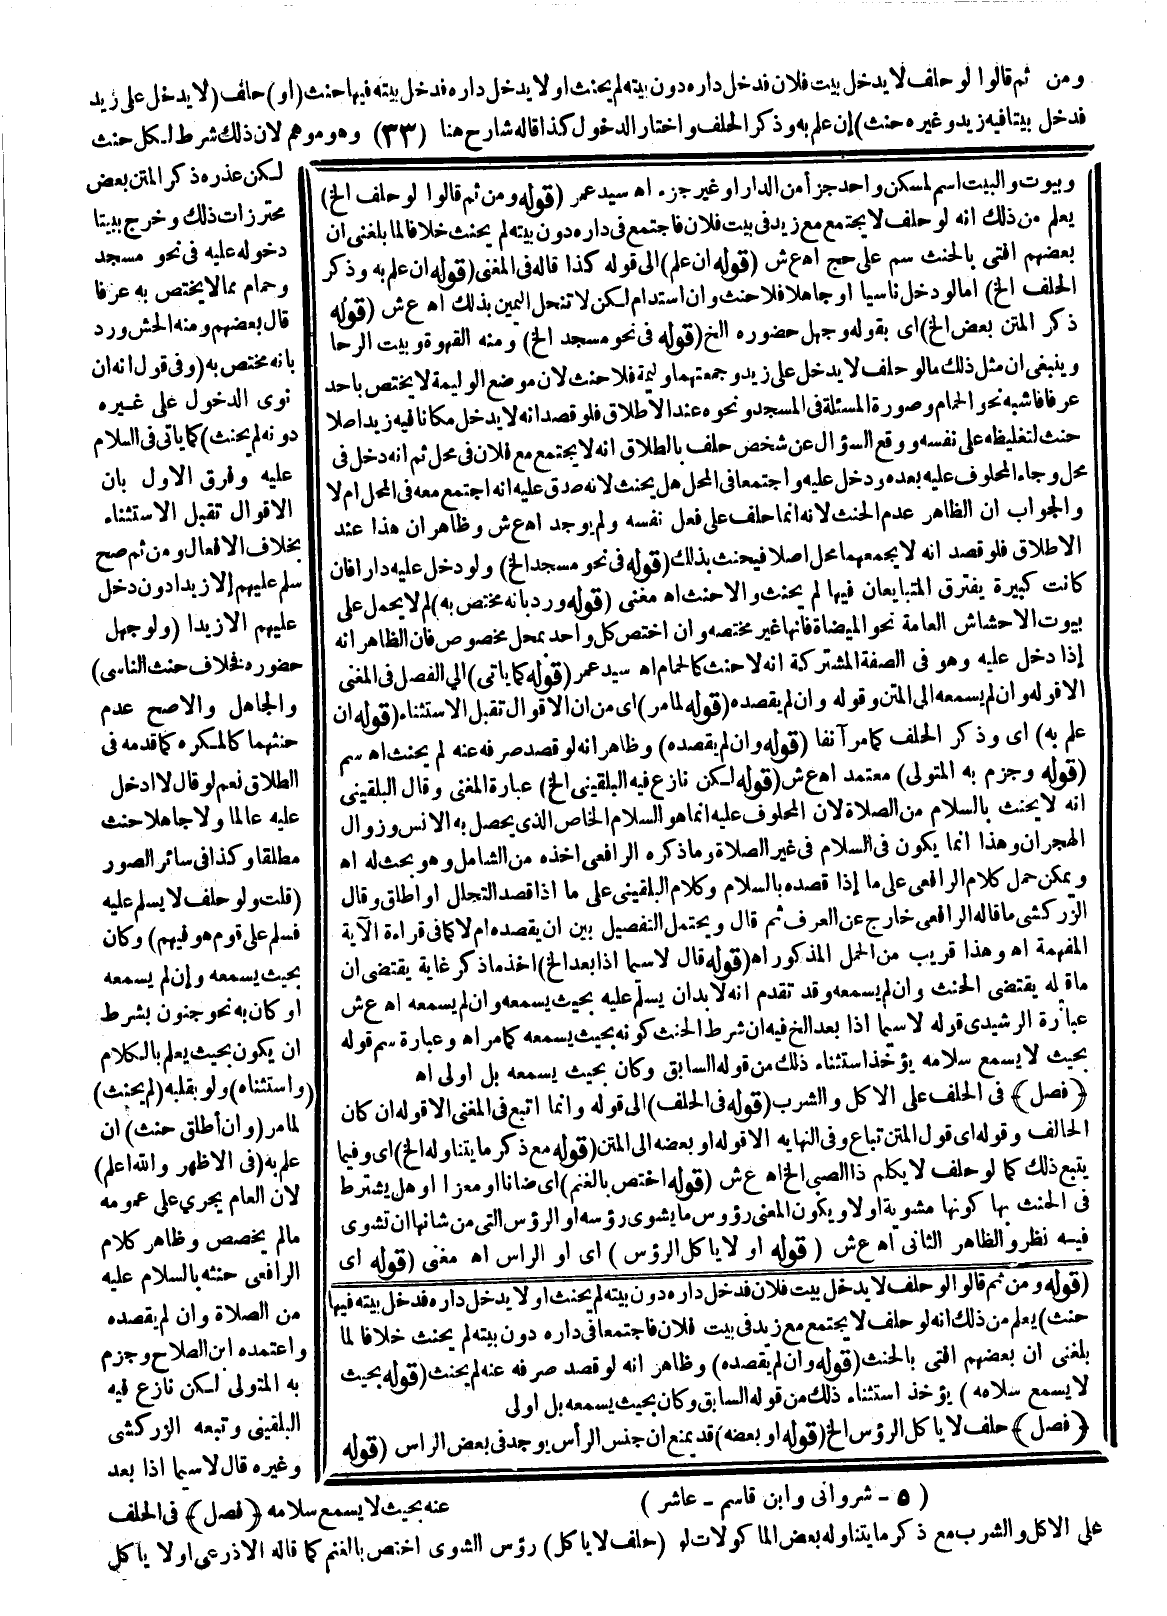 ومن ثم قالوا لو حلف لا يدخل بيت فلان فدخل داره دون بيته لم يحنث او لا يدخل داره فدخل بيته فيها حنث (او) حلف (لا يدخل على زيد
فدخل بيتا فيه زيد وغيره حنث) إن علم به وذكر الحلف واختار الدخول كذا قاله شارح هنا (٣٣) وهو موهم لان ذلك شرط لكل حنث
لكن عذره ذكر المتن بعض
محترزات ذلك وخرج ببيتا
دخوله عليه فى نحو مسجد
وحمام مما لا يختص به عرفا
قال بعضهم ومنه الحش ورد
بانه مختص به (وفى قول انه ان
نوى الدخول على غيره
دونه لم يحنث) كما ياتى فى السلام
عليه وفرق الاول بان
الاقوال تقبل الاستثناء
بخلاف الافعال ومن ثم صح
سلم عليهم إلا زيدا دون دخل
عليهم الا زيدا (ولو جهل
حضوره فخلاف حنث الناسى)
والجاهل والاصح عدم
حنثهما كالمكره كما قدمه فى
الطلاق نعم لو قال لا ادخل
عليه عالما ولا جاهلا حنث
مطلقا وكذا فى سائر الصور
(قلت ولو حلف لا يسلم عليه
فسلم على قوم هو فيهم) وكان
بحيث يسمعه وإن لم يسمعه
او كان به نحو جنون بشرط
ان يكون بحيث يعلم بالكلام
(واستثناه) ولو بقلبه (لم يحنث)
لما مر (وان أطلق حنث) ان
علم به (فى الاظهر والله اعلم)
لان العام يجرى على عمومه
مالم يخصص وظاهر كلام
الرافعى حنثه بالسلام عليه
من الصلاة وان لم يقصده
واعتمده ابن الصلاح وجزم
به المتولى لكن نازع فيه
البلقينى وتبعه الزركشى
وغيره قال لا سيما اذا بعد
عنه بحيث لا يسمع سلامه ﴿فصل﴾ فى الحلف
على الاكل والشرب مع ذكر ما يتناوله بعض الماكولات لو (حلف لا ياكل) رؤس الشوى اختص بالغنم كما قاله الاذرعى او لا ياكل
وبيوت والبيت اسم لمسكن واحد جزأ من الدار او غير جزء اه سيد عمر (قوله ومن ثم قالوا لو حلف الخ)
يعلم من ذلك انه لو حلف لا يجتمع مع زيد فى بيت فلان فاجتمع فى داره دون بيته لم يحنث خلافا لما بلغنى ان
بعضهم افتى بالحنث سم على حج اه ع ش (قوله ان علم) الى قوله كذا قاله فى المغنى (قوله ان علم به وذكر
الحلف الخ) اما لو دخل ناسيا او جاهلا فلا حنث وان استدام لكن لا تنحل اليمين بذلك اه ع ش (قوله
ذكر المتن بعض الخ) اى بقوله وجهل حضوره الخ (قوله فى نحو مسجد الخ) ومنه القهوة وبيت الرحا
وينبغى ان مثل ذلك مالو حلف لا يدخل على زيد وجمعتهما وليمة فلا حنث لان موضع الوليمة لا يختص باحد
عرفا فاشبه نحو الحمام وصورة المسئلة فى المسجد ونحوه عند الاطلاق فلو قصد انه لا يدخل مكانا فيه زيد اصلا
حنث لتغليظه على نفسه ووقع السؤال عن شخص حلف بالطلاق انه لا يجتمع مع فلان فى محل ثم انه دخل فى
محل وجاء المحلوف عليه بعده ودخل عليه واجتمعا فى المحل هل يحنث لانه صدق عليه انه اجتمع معه فى المحل ام لا
والجواب ان الظاهر عدم الحنث لانه انما حلف على فعل نفسه ولم يوجد اه ع ش وظاهر ان هذا عند
الاطلاق فلو قصد انه لا يجمعهما محل اصلا فيحنث بذلك (قوله فى نحو مسجد الخ) ولو دخل عليه دارا فان
كانت كبيرة يفترق المتبايعان فيها لم يحنث والا حنث اه مغنى (قوله ورد بانه مختص به) لم لا يحمل على
بيوت الاحشاش العامة نحو الميضاة فانها غير مختصه وان اختص كل واحد بمحل مخصوص فان الظاهر انه
إذا دخل عليه وهو فى الصفة المشتركة انه لا حنث كالحمام اه سيد عمر (قوله كما ياتى) الي الفصل فى المغنى
الا قوله وان لم يسمعه الى المتن وقوله وان لم يقصده (قوله لما مر) اى من ان الاقوال تقبل الاستثناء (قوله ان
علم به) اى وذكر الحلف كما مر آنفا (قوله وان لم يقصده) وظاهر انه لو قصد صرفه عنه لم يحنث اه سم
(قوله وجزم به المتولى) معتمد اه ع ش (قوله لكن نازع فيه البلقينى الخ) عبارة المغنى وقال البلقينى
انه لا يحنث بالسلام من الصلاة لان المحلوف عليه انما هو السلام الخاص الذى يحصل به الانس وزوال
الهجران وهذا انما يكون فى السلام فى غير الصلاة وما ذكره الرافعى اخذه من الشامل وهو بحث له اه
ويمكن حمل كلام الرافعى على ما إذا قصده بالسلام وكلام البلقينى على ما اذا قصد التحلل او اطلق وقال
الزركشى ما قاله الرافعى خارج عن العرف ثم قال ويحتمل التفصيل بين ان يقصده ام لا كما فى قراءة الآية
المفهمة اه وهذا قريب من الحمل المذكور اه (قوله قال لا سيما اذا بعد الخ) اخذ ما ذكر غاية يقتضى ان
ما قبله يقتضى الحنث وان لم يسمعه وقد تقدم انه لابد ان يسلم عليه بحيث يسمعه وان لم يسمعه اه ع ش
عبارة الرشيدى قوله لا سيما اذا بعد الخ فيه ان شرط الحنث كونه بحيث يسمعه كما مر اه وعبارة سم قوله
بحيث لا يسمع سلامه يؤخذ استثناء ذلك من قوله السابق وكان بحيث يسمعه بل اولى اه
﴿فصل﴾ فى الحلف على الاكل والشرب (قوله فى الحلف) الى قوله وانما اتبع فى المغنى الا قوله ان كان
الحالف وقوله اى قول المتن تباع وفى النهايه الا قوله او بعضه الى المتن (قوله مع ذكر ما يتناوله الخ) اى وفيما
يتبع ذلك كما لو حلف لا يكلم ذا الصبى الخ اه ع ش (قوله اختص بالغنم) اى ضانا او معزا او هل يشترط
فى الحنث بها كونها مشوية او لا ويكون المعنى رؤوس ما يشوى رؤسه او الرؤس التى من شانها ان تشوى
فيه نظر والظاهر الثانى اه ع ش (قوله او لا ياكل الرؤس) اى او الراس اه مغنى (قوله اى
(قوله ومن ثم قالوا لو حلف لا يدخل بيت فلان فدخل داره دون بيته لم يحنث او لا يدخل داره فدخل بيته فيها
حنث) يعلم من ذلك انه لو حلف لا يجتمع مع زيد فى بيت فلان فاجتمعا فى داره دون بيته لم يحنث خلافا لما
بلغنى ان بعضهم افتى بالحنث (قوله وان لم يقصده) وظاهر انه لو قصد صرفه عنه لم يحنث (قوله بحيث
لا يسمع سلامه) يؤخذ استثناء ذلك من قوله السابق وكان بحيث يسمعه بل اولى
﴿فصل﴾ حلف لا ياكل الرؤس الخ (قوله او بعضه) قد يمنع ان جنس الرأس يوجد فى بعض الراس (قوله
(٥ - شروانى وابن قاسم - عاشر)